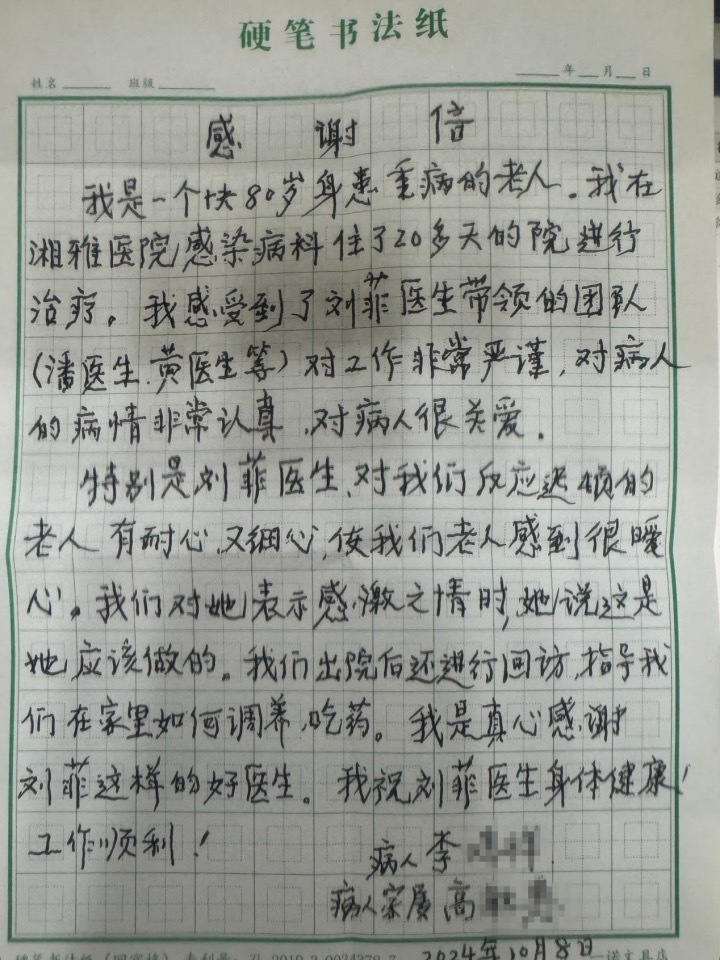 硬笔书法纸
姓名 班级 年 月 日
感谢信
我是一个快80岁身患重病的老人。我在
湘雅医院感染病科住了20多天的院进行
治疗。我感受到了刘菲医生带领的团队
(潘医生、黄医生等)对工作非常严谨,对病人
的病情非常认真,对病人很关爱。
特别是刘菲医生,对我们反应迟顿的
老人有耐心,又细心,使我们老人感到很暖
心。我们对她表示感激之情时,她说这是
她应该做的。我们出院后还进行回访,指导我
们在家里如何调养,吃药。我是真心感谢
刘菲这样的好医生。我祝刘菲医生身体健康!
工作顺利!
病人李
病人家属高
2024年10月8日